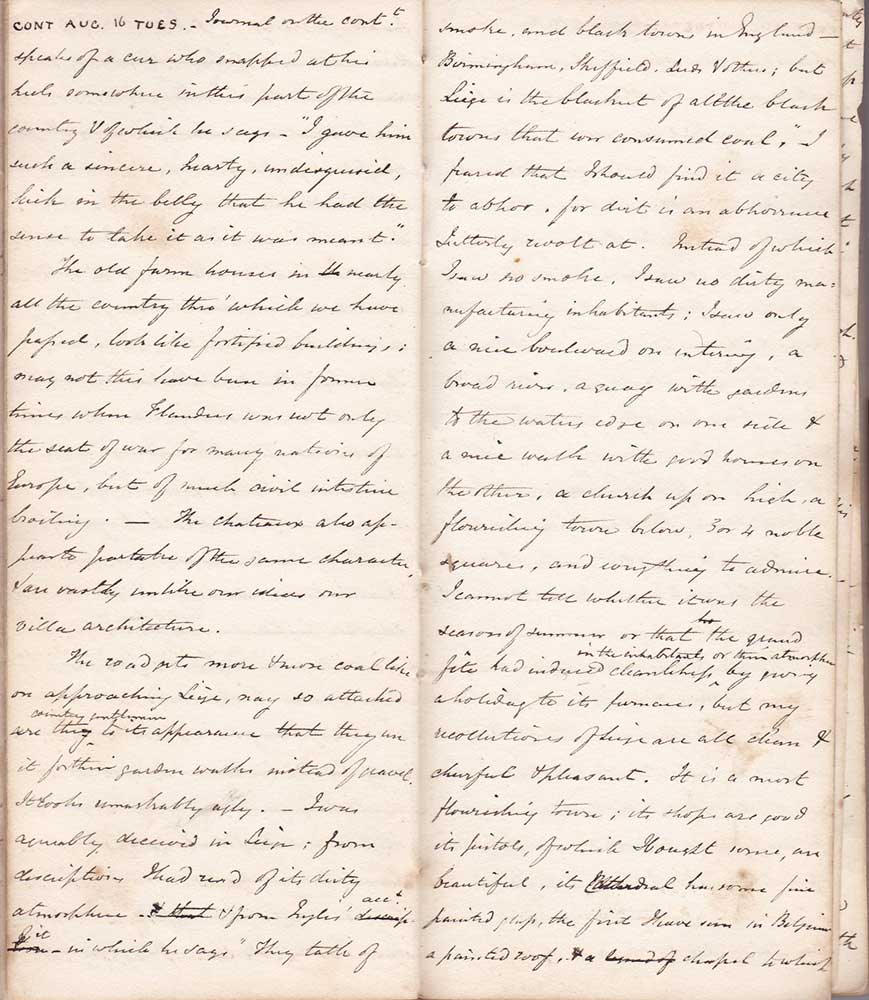 CONT AUG. 16 TUES. - Journal on the contt.
speaks of a cur who snapped at his
heels somewhere in this part of the
country & of which he says - "I gave him
such a sincere, hearty, undisguised,
kick in the belly that he had the
sense to take it as it was meant."
The old farm houses in nearly
all the country thro' which we have
passed, look like fortified buildings;
may not this have been in former
times when Flanders was not only
the seat of war for many nations of
Europe, but of much civil intestine
broiling. — The chateaux also ap-
pear to partake of the same character,
& are vastly unlike our ideas our
villa architecture.
The road gets more & more coal like
on approaching Liège, nay so attached
country gentlemen
are they to its appearance that they use
it for their garden walks instead of gravel.
It looks remarkably ugly. - I was
agreeably deceived in Liège; from
descriptions I had read of its dirty
acct.
atmosphere - & that & from Inglis'
it
- in which he says "They talk of
smoke, and black towns in England —
Birmingham, Sheffield, Leeds & others; but
Liège is the blackest of all the black
towns that ever consumed coal," - I
feared that I should find it a city
to abhor, for dirt is an abhorrence
I utterly revolt at. Instead of which
I saw no smoke, I saw no dirty ma=
nufacturing inhabitants; I saw only
a nice boulevard on entering, a
broad river, a quay with gardens
to the waters edge on one side &
a nice walk with good houses on
the other, a church up on high, a
flourishing town below, 3 or 4 noble
squares, and everything to admire.
I cannot tell whether it was the
season of summer or that the grand
in the inhabitants or their atmosphere
fête had induced cleanliness by giving
a holiday to its furnaces, but my
recollections of Liège are all clean &
cheerful & pleasant. It is a most
flourishing town; its shops are good
its pistols, of which I bought some, are
beautiful, its Cathedral has some fine
painted glass, the first I have seen in Belgium
a painted roof, & a chapel to which